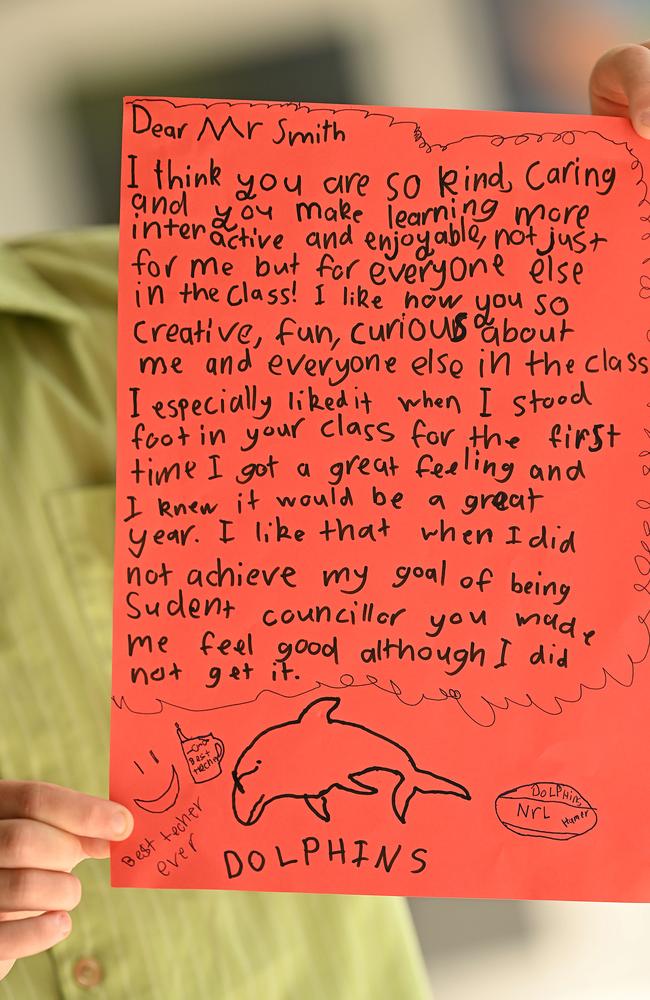 Dear Mr Smith
I think you are so kind, Caring
and you make learning more
interactive and enjoyable, not just
for me but for everyone else
in the class! I like how you so
creative, fun, curious about
me and everyone else in the class
I especially liked it when I stood
foot in your class for the first
time I got a great feeling and
I knew it would be a great
year. I like that when I did
not achieve my goal of being
Sudent councillor you made
me feel good although I did
not get it.
Best
Best techer
ever
DOLPHINS
DOLPHINS
NRL